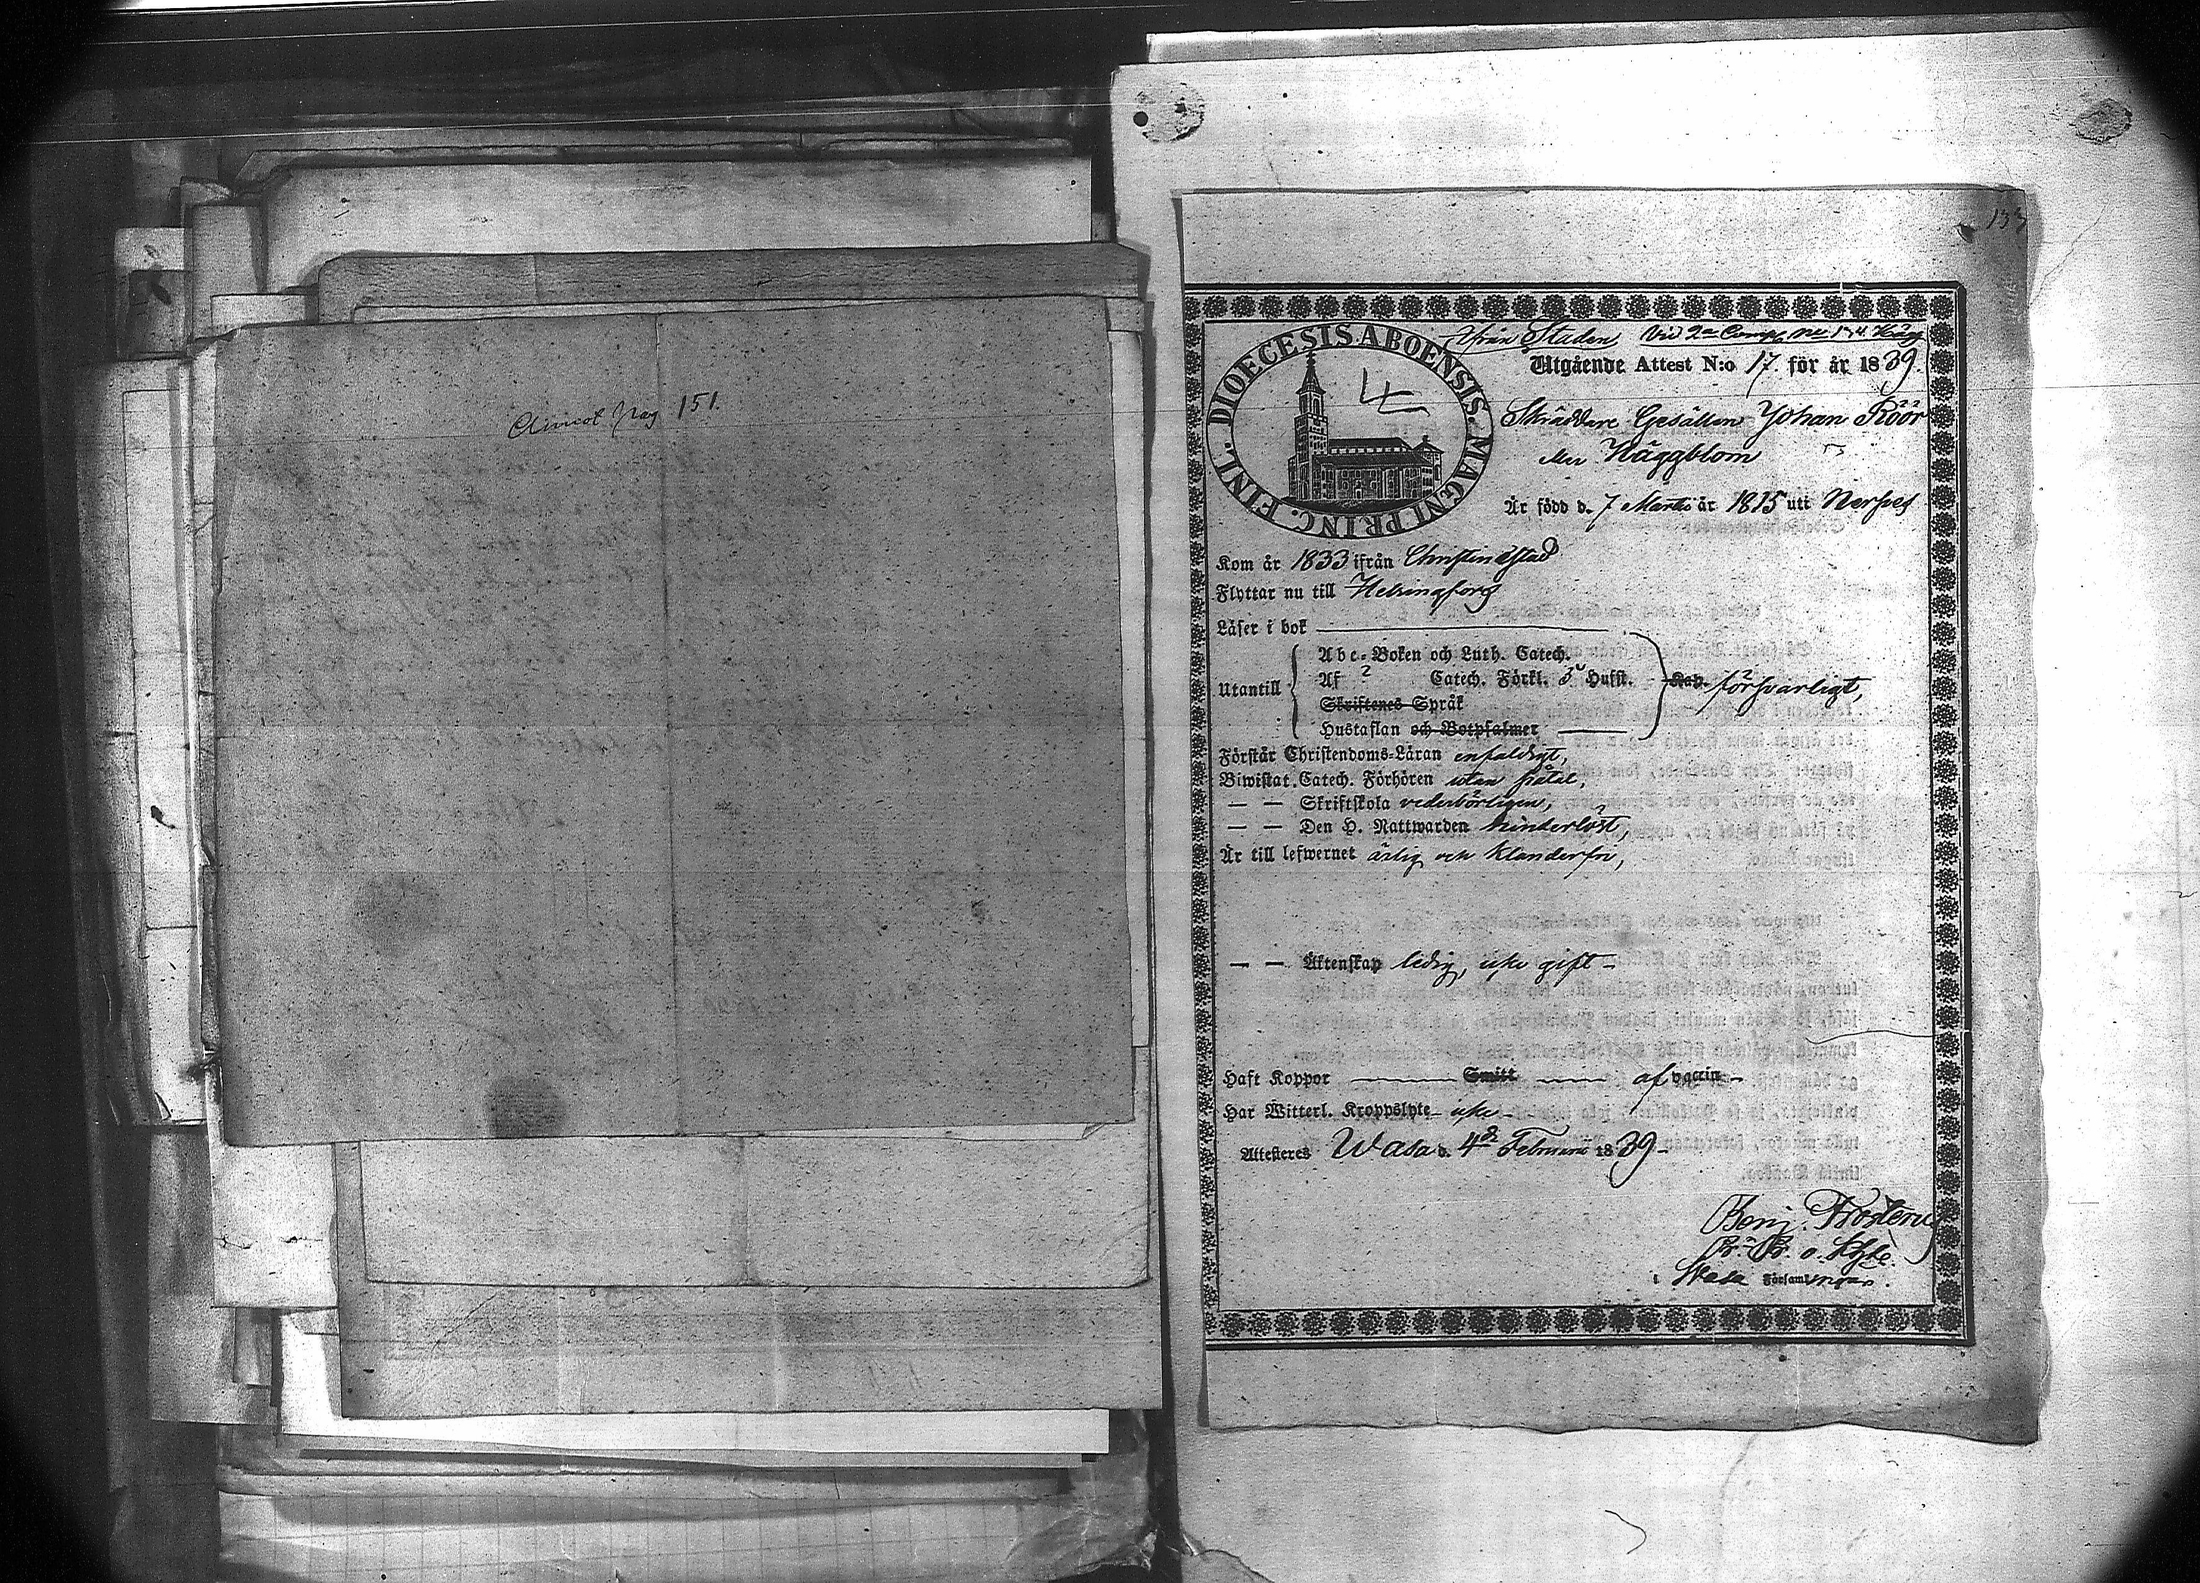 pag 151.
133
DIOECESIS ABOENSIS. MAGNI PRINC. FINL.
ifrån Staden Vid 2:a Comp.
Utgående Attest N:o 17 för år 1839.
Skräddare Gesällen Johan Röör
eller Häggblom
Är född d. 7 Martii år 1815 uti Nerpes
Kom år 1833 ifrån Christinestad
Flyttar nu till Helsingfors
Läser i bok
Abc-Boken och Luth. Catech.
Utantill Af 2 Catech. Förkl. 5 Hufst. Kap. försvarligt,
Skriftenes Språk
Hustaflan och Botpsalmer
Förstår Christendoms-Läran enfaldigt,
Biwistat Catech. Förhören utan påtal,
— — Skriftskola vederbörligen,
— — Den H. Nattwarden hinderlöst,
Är till lefwernet ärlig och klanderfri,
— — Äktenskap ledig, icke gift -
Haft Koppor Smitt af vaccin -
Har Witterl. Kroppslyte icke -
Attesteres Wasa d. 4de Februarii 1839 -
Benj. Frosterus
i Wasa Församlingar.